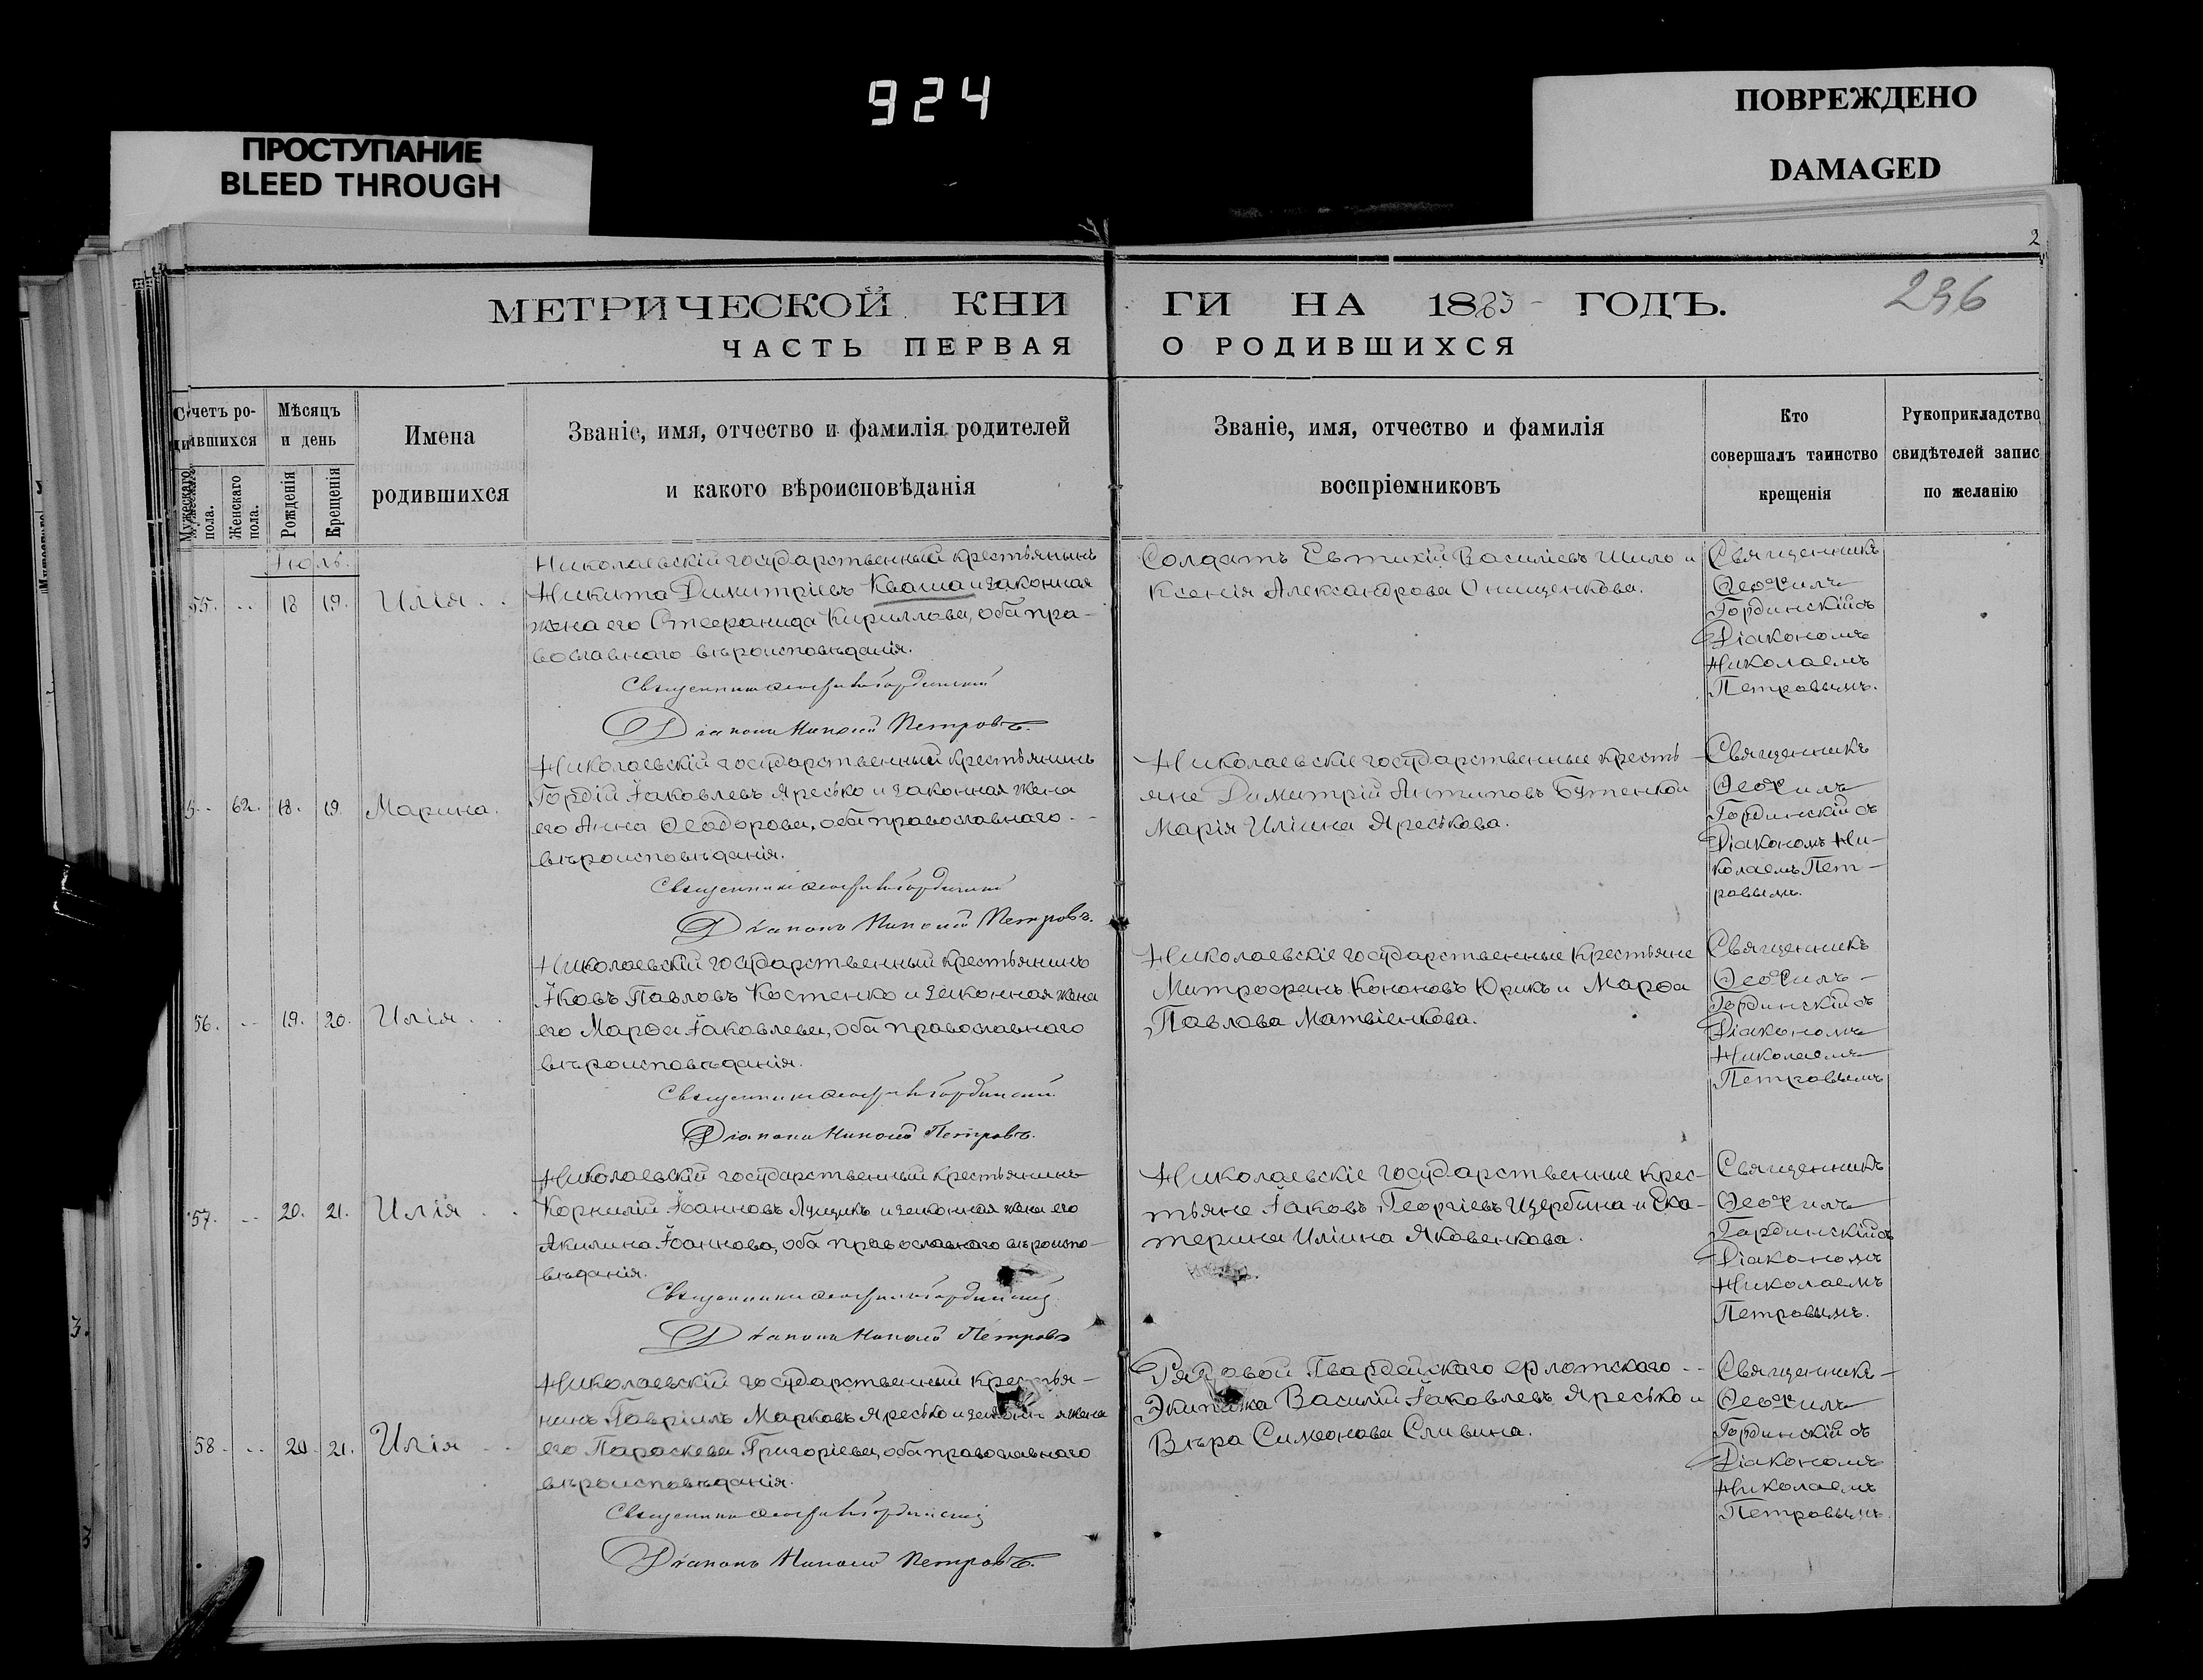 924
ПРОСТУПАНИЕ
BLEED THROUGH
ПОВРЕЖДЕНО
DAMAGED
2
236
МЕТРИЧЕСКОЙ КНИ
ГИ НА 1883 ГОДЪ.
ЧАСТЬ ПЕРВАЯ
О РОДИВШИХСЯ
Счетъ ро-
дившихся
Мужескаго пола.
Женскаго пола.
Мѣсяцъ
и день
Рожденія
Крещенія
Имена
родившихся
Званіе, имя, отчество и фамилія родителей
и какого вѣроисповѣданія
Званіе, имя, отчество и фамилія
воспріемниковъ
Кто
совершалъ таинство
крещенія
Рукоприкладство
свидѣтелей запис
по желанію
Іюль.
55. .. 18 19. Илія . .
Николаевскій государственный крестьянинъ
Никита Димитріевъ Кваша и законная
жена его Стефанида Кириллова, оба пра-
вославнаго вѣроисповѣданія.
Священникъ Ѳеофилъ Гординскій
Діаконъ Николай Петровъ.
Солдатъ Евтихій Василіевъ Шило и
Ксенія Александрова Онищенкова.
Священникъ
Ѳеофилъ
Гординскій съ
Діакономъ
Николаемъ
Петровымъ.
62. 18. 19 Марина.
Николаевскій государственный крестьянинъ
Гордій Іаковлевъ Яресько и законная жена
его Анна Ѳеодорова, оба православнаго
вѣроисповѣданія.
Священникъ Ѳеофилъ Гординскій
Діаконъ Николай Петровъ.
Николаевскіе государственные кресть-
яне Димитрій Антиповъ Бутенко и
Марія Иліина Яреськова.
Священникъ
Ѳеофилъ
Гординскій съ
Діакономъ Ни-
колаемъ Пет-
ровымъ.
56. .. 19. 20. Илія . .
Николаевскій государственный крестьянинъ
Іяковъ Павловъ Костенко и законная жена
его Марѳа Іаковлева, оба православнаго
вѣроисповѣданія.
Священникъ Ѳеофилъ Гординскій
Діаконъ Николай Петровъ.
Николаевскіе государственные крестьяне
Митрофанъ Кононовъ Юрикъ и Марѳа
Павлова Матвіенкова.
Священникъ
Ѳеофилъ
Гординскій съ
Діакономъ
Николаемъ
Петровымъ
57. .. 20. 21. Илія . .
Николаевскій государственный крестьянинъ
Корнилій Іоанновъ и законная жена его
Акилина Іоаннова, оба православнаго вѣроиспо-
вѣданія.
Священникъ Ѳеофилъ Гординскій
Діаконъ Николай Петровъ
Николаевскіе государственные крес-
тьяне Іаковъ Георгіевъ Щербина и Ека-
терина Иліина Яковенкова.
Священникъ
Ѳеофилъ
Гординскій съ
Діакономъ
Николаемъ
Петровымъ.
58. .. 20. 21. Илія . .
Николаевскій государственный крестья-
нинъ Гавріилъ Марковъ Яресько и законная жена
его Параскева Григоріева, оба православнаго
вѣроисповѣданія.
Священникъ Ѳеофилъ Гординскій
Діаконъ Николай Петровъ.
Рядовой Гвардейскаго флотскаго
Экипажа Василій Іаковлевъ Яресько и
Вѣра Симеонова Сливина.
Священникъ
Ѳеофилъ
Гординскій съ
Діакономъ
Николаемъ
Петровымъ